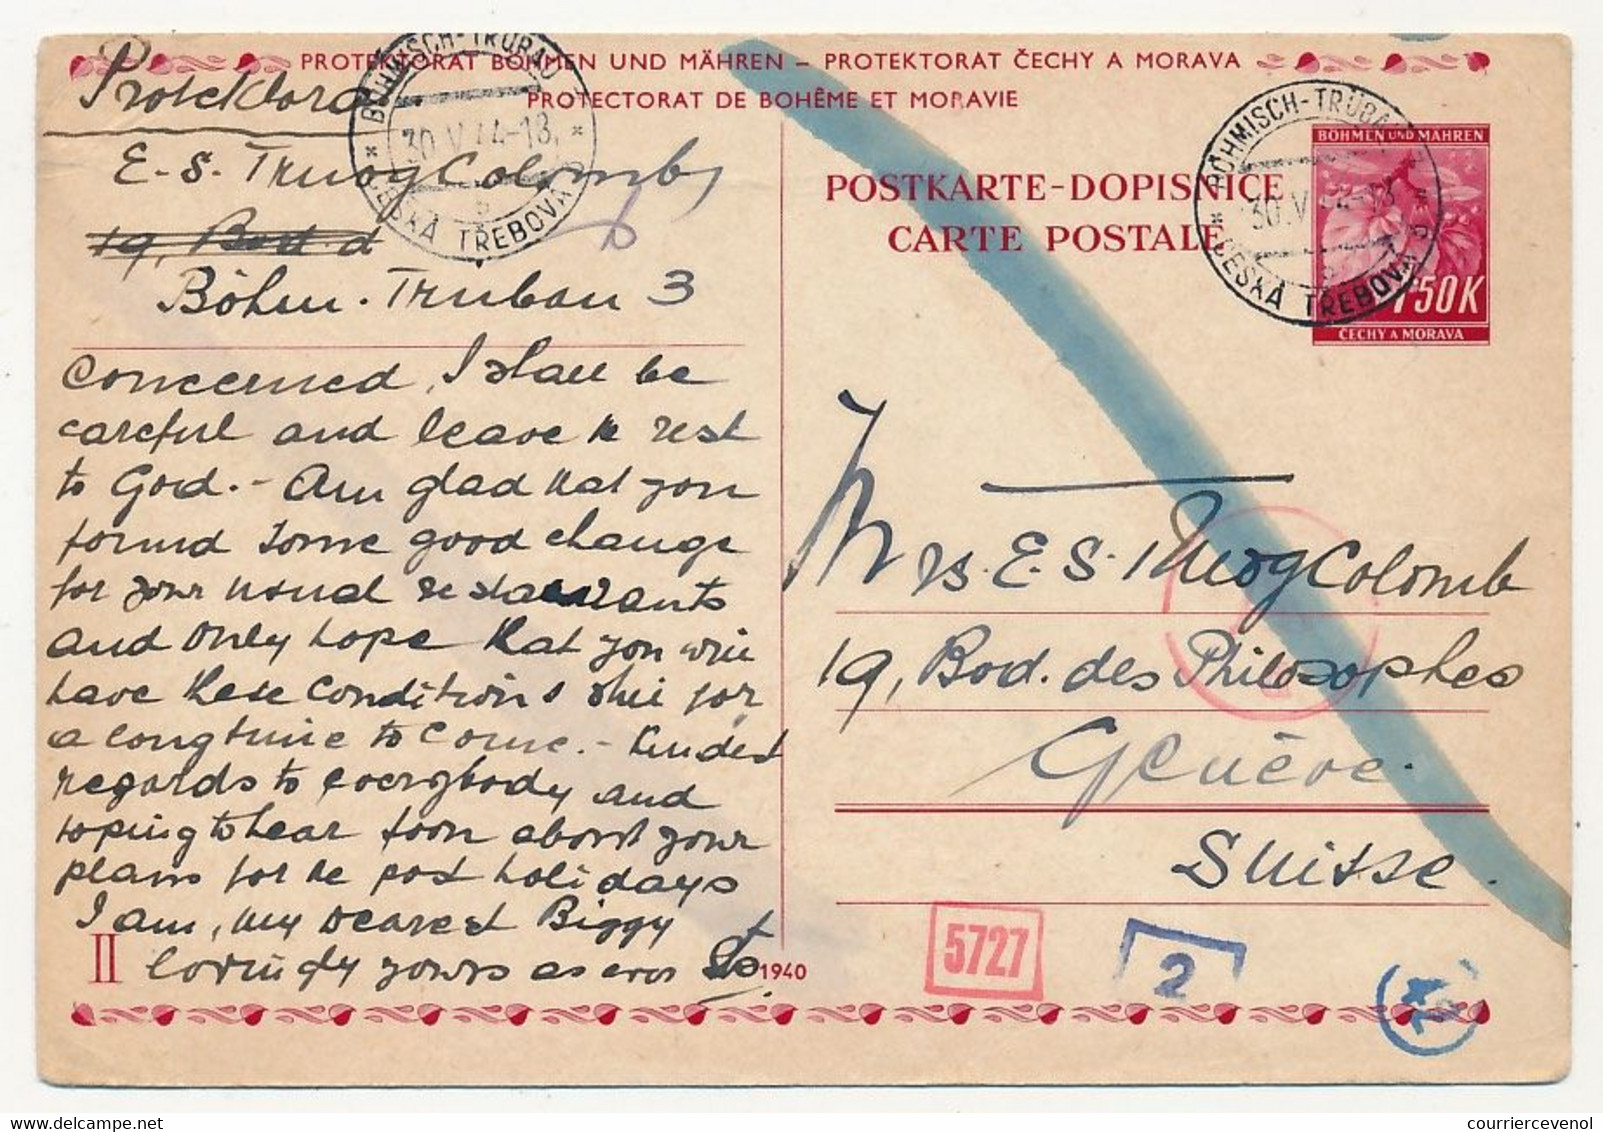 PROTEKTORAT BÖHMEN UND MÄHREN – PROTEKTORAT ČECHY A MORAVA
PROTECTORAT DE BOHÊME ET MORAVIE
Protektorat
E. S. Truog Colomb
19, Bod. d
Böhm. Trübau 3
BÖHMISCH-TRÜBAU
30.V.44-18
ČESKÁ TŘEBOVÁ
concerned, I shall be
careful and leave the rest
to God. - Am glad that you
found some good change
for your usual restaurants
and only hope that you will
have these conditions still for
a long time to come. - Kindest
regards to everybody and
hoping to hear soon about your
plans for the post holidays
I am, my dearest Biggy
lovingly yours as ever
II
1940
POSTKARTE-DOPISNICE
CARTE POSTALE
BÖHMEN UND MÄHREN
1·50 K
ČECHY A MORAVA
BÖHMISCH-TRÜBAU
30.V.44-18
ČESKÁ TŘEBOVÁ
Mrs. E. S. Truog Colomb
19, Bod. des Philosophes
Genève.
Suisse.
5727
2
courriercevenol